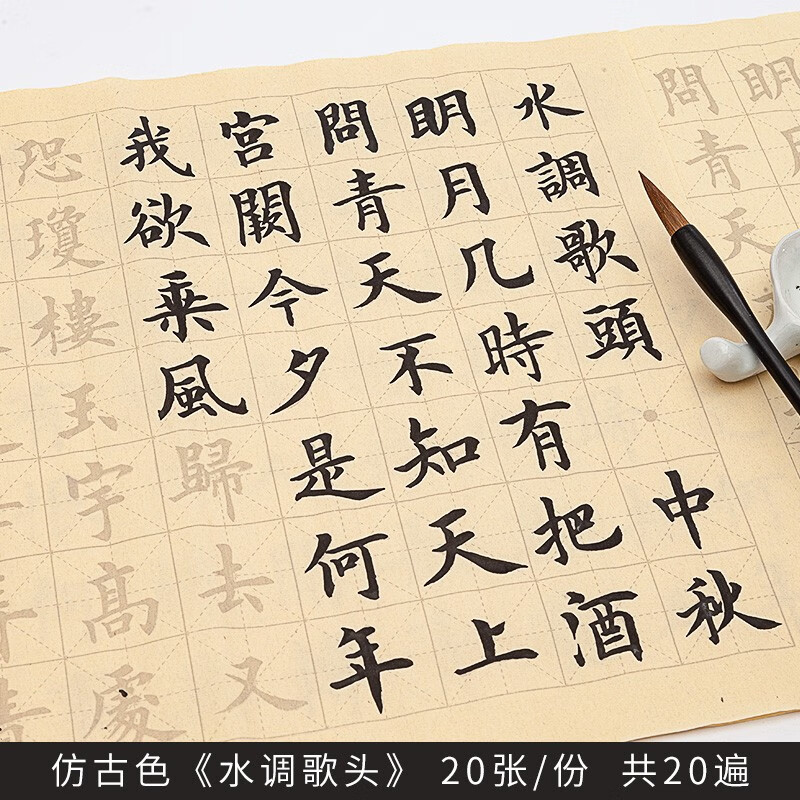 明月
問青天
水調歌頭·中秋
明月几時有把酒
問青天不知天上
宮闕今夕是何年
我欲乘風歸去又
恐瓊樓玉宇高處
仿古色《水调歌头》 20张/份 共20遍